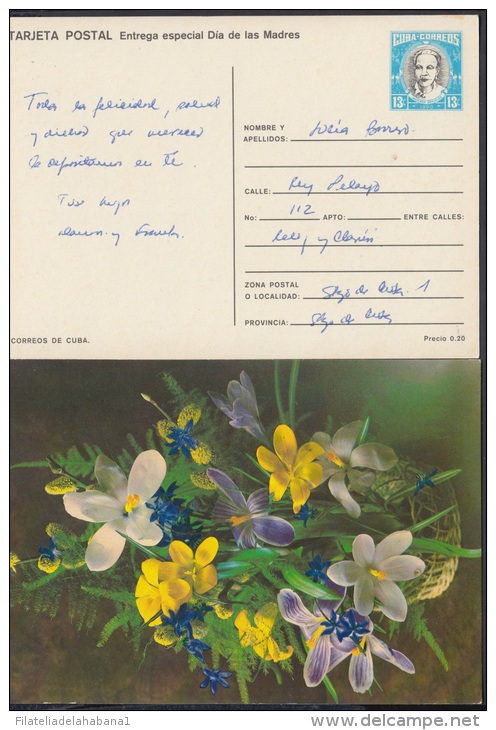 TARJETA POSTAL Entrega especial Día de las Madres
CUBA-CORREOS
13¢ 13¢
Toda la felicidad, salud
y dicha que mereces
la depositamos en Tí.
Tus hijos
y
NOMBRE Y
APELLIDOS: Lucía
CALLE: Rey Pelayo
No: 112 APTO: ENTRE CALLES:
y Clarín
ZONA POSTAL
O LOCALIDAD: Stgo de Cuba. 1
PROVINCIA: Stgo de Cuba
CORREOS DE CUBA.
Precio 0.20
Filateliadelahabana1